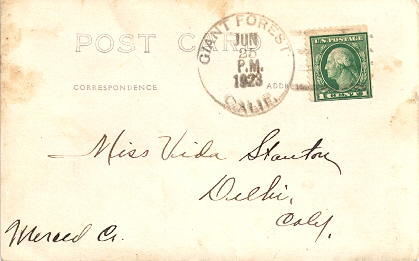 POST CARD
GIANT FOREST
JUN
25
P.M.
1923
CALIF.
U.S. POSTAGE
1 CENT 1
CORRESPONDENCE
ADDRE
Miss Vida Stanton
Delhi,
Calif.
Merced Co.